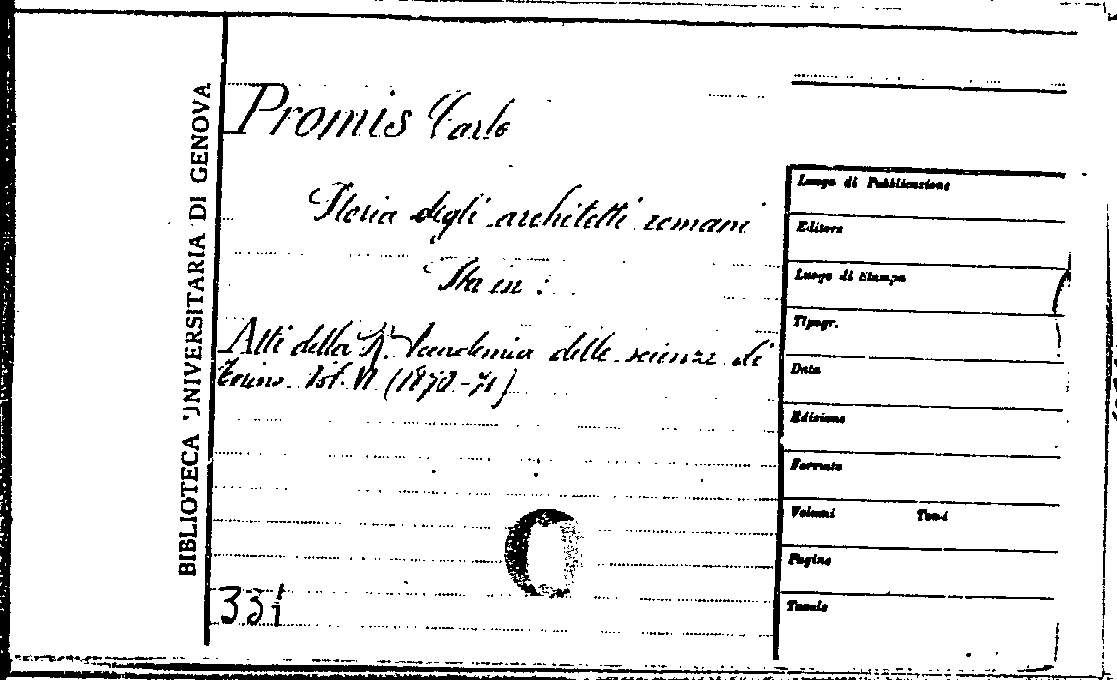 BIBLIOTECA UNIVERSITARIA DI GENOVA
Promis Carlo
Storia degli architetti romani
Sta in :
Atti della R. Accademia delle scienze di
Torino. Vol. VI (1870-71)
331
Luogo di Pubblicazione
Editore
Luogo di Stampa
Tipogr.
Data
Edizione
Formato
Volumi Tomi
Pagine
Tavole